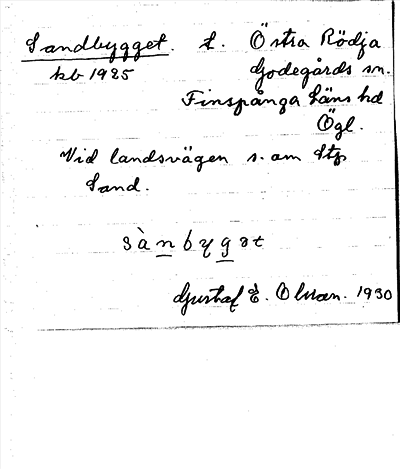 Sandbygget. t. Östra Rödja
kb 1925 Godegårds sn.
Finspånga läns hd
Ögl.
Vid landsvägen s. om Stp
Sand.
sànbyget
Gustaf E. Olsson. 1930